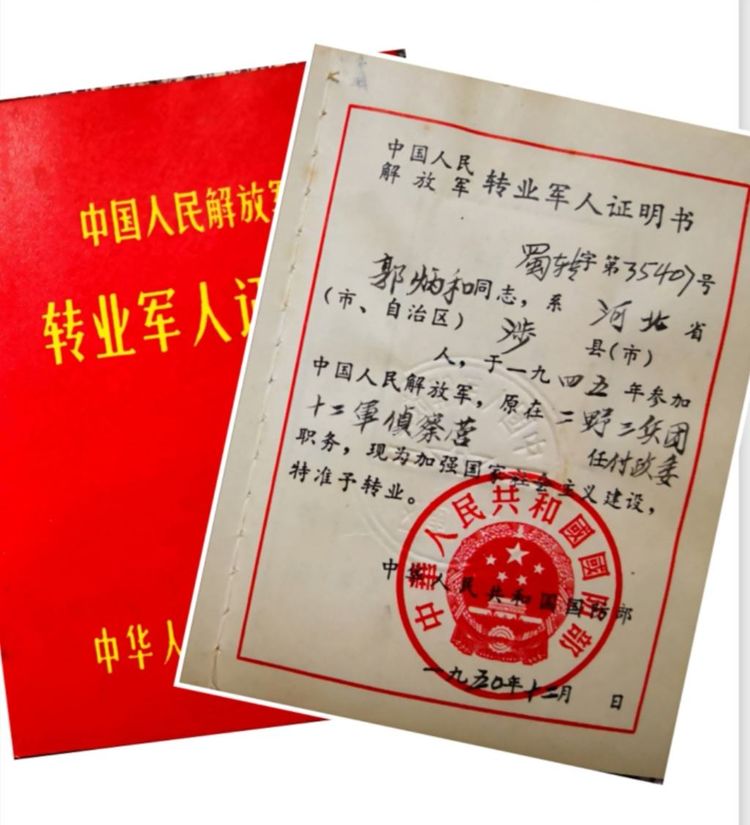 中国人民解放军
转业军人证
中华人
中国人民
解放军 转业军人证明书
蜀转字第35407号
郭炳和同志，系 河北 省
(市、自治区) 涉 县(市)
人，于一九四五年参加
中国人民解放军，原在 二野二兵团
十二軍偵察营 任付政委
职务，现为加强国家社会主义建设，
特准予转业。
中華人民共和國國防部
中华人民共和国国防部
一九五〇年十二月 日